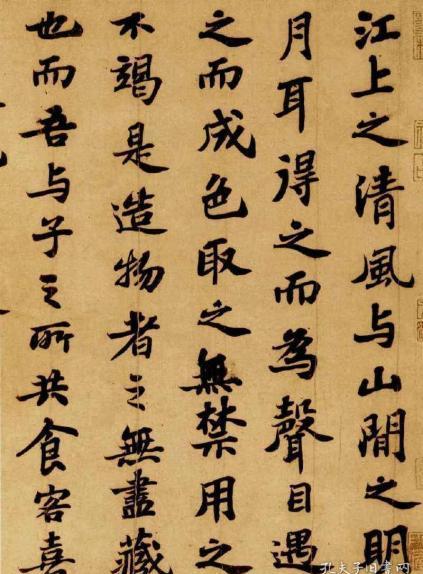 江上之清風与山間之明
月耳得之而為聲目遇
之而成色取之無禁用之
不竭是造物者之無盡藏
也而吾与子之所共食客喜
孔夫子旧书网